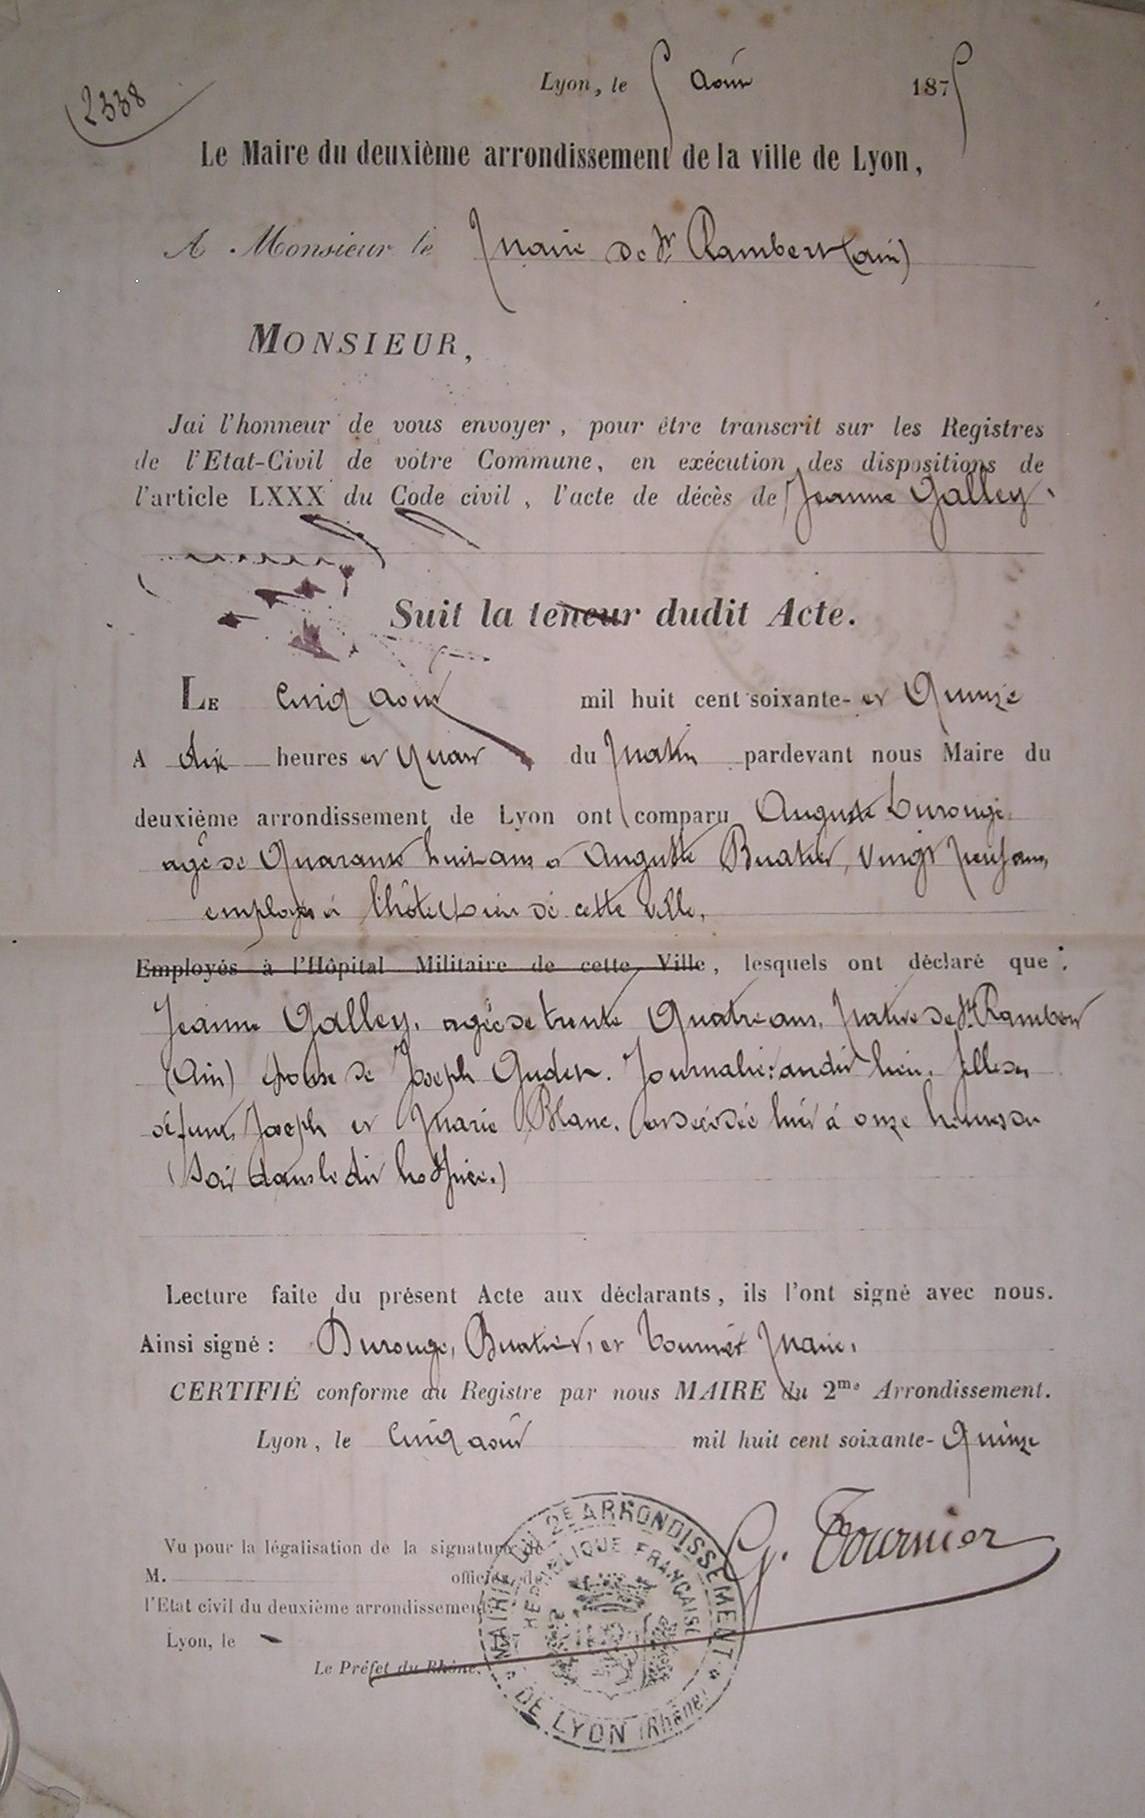 2338
Lyon, le 5 août 1875
Le Maire du deuxième arrondissement de la ville de Lyon,
A Monsieur le Maire de St Rambert (ain)
MONSIEUR,
Jai l'honneur de vous envoyer, pour être transcrit sur les Registres
de l'Etat-Civil de votre Commune, en exécution des dispositions de
l'article LXXX du Code civil, l'acte de décès de Jeanne Galley.
Suit la teneur dudit Acte.
LE Cinq août mil huit cent soixante- et Quinze
A dix heures et Quart du Matin pardevant nous Maire du
deuxième arrondissement de Lyon ont comparu Auguste Durouge
agé de Quarante huit ans et Auguste Buatier, vingt neuf ans,
employés à l'hôtel Dieu de cette ville.
Employés à l'Hôpital Militaire de cette Ville, lesquels ont déclaré que :
Jeanne Galley, agée de trente Quatre ans, native de St Rambert
(Ain) épouse de Joseph Journalier audit lieu, fille des
défunts Joseph et Marie Blanc, est décédée hier à onze heures du
(soir dans le dit hospice.)
Lecture faite du présent Acte aux déclarants, ils l'ont signé avec nous.
Ainsi signé : Durouge, Buatier, et Tournier Maire.
CERTIFIÉ conforme au Registre par nous MAIRE du 2me Arrondissement.
Lyon, le Cinq août mil huit cent soixante- Quinze
G. Tournier
Vu pour la légalisation de la signature de
M. officier de
l'Etat civil du deuxième arrondissement.
Lyon, le
Le Préfet du Rhône,
MAIRIE DU 2E ARRONDISSEMENT
RÉPUBLIQUE FRANÇAISE
DE LYON (Rhône)